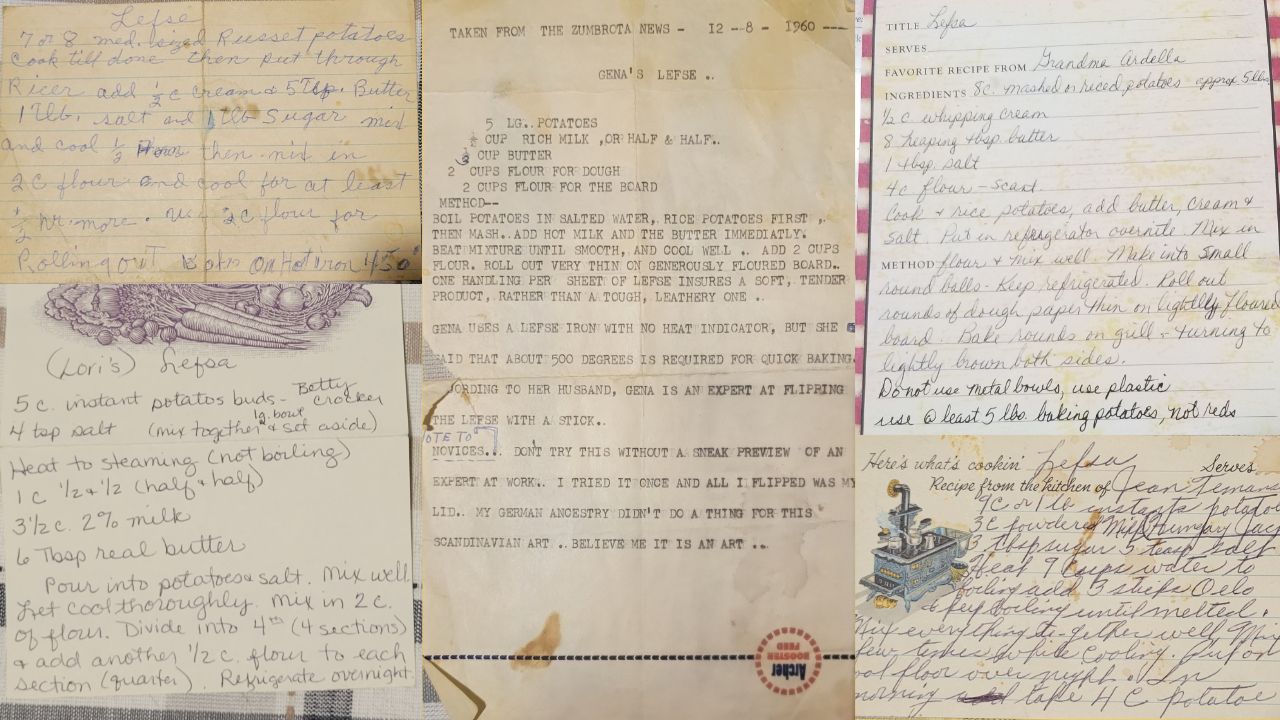 Lefsa
7 or 8 med. sized Russet potatoes
Cook till done then put through
Ricer add ½ c cream & 5 Tsp. Butter
1 Tlb. salt and 1 Tlb Sugar mix
and cool ½ then mix in
2 C flour and cool for at least
½ hr. more. Use ½ c flour for
Rolling out on Hot iron 450°
(Lori's) Lefsa
5 c. instant potatos buds - Betty Crocker
4 tsp salt (mix together lg. bowl & set aside)
Heat to steaming (not boiling)
1 c ½ & ½ (half & half)
3½ c. 2% milk
6 Tbsp real butter
Pour into potatoes & salt. Mix well.
Let cool thoroughly. Mix in 2 c.
of flour. Divide into 4th (4 sections)
& add another ½ c. flour to each
section (quarter). Refrigerate overnight.
TAKEN FROM THE ZUMBROTA NEWS - 12 --8 - 1960 ---
GENA'S LEFSE ..
5 LG.. POTATOES
CUP RICH MILK ,OR HALF & HALF..
CUP BUTTER
2 CUPS FLOUR FOR DOUGH
2 CUPS FLOUR FOR THE BOARD
METHOD--
BOIL POTATOES IN SALTED WATER,. RICE POTATOES FIRST ,.
THEN MASH.. ADD HOT MILK AND THE BUTTER IMMEDIATLY.
BEAT MIXTURE UNTIL SMOOTH, AND COOL WELL .. ADD 2 CUPS
FLOUR. ROLL OUT VERY THIN ON GENEROUSLY FLOURED BOARD..
ONE HANDLING PER SHEET OF LEFSE INSURES A SOFT, TENDER
PRODUCT, RATHER THAN A TOUGH, LEATHERY ONE ..
GENA USES A LEFSE IRON WITH NO HEAT INDICATOR, BUT SHE
AID THAT ABOUT 500 DEGREES IS REQUIRED FOR QUICK BAKING.
ORDING TO HER HUSBAND, GENA IS AN EXPERT AT FLIPPING
THE LEFSE WITH A STICK..
OTE TO
NOVICES.. DON'T TRY THIS WITHOUT A SNEAK PREVIEW OF AN
EXPERT AT WORK.. I TRIED IT ONCE AND ALL I FLIPPED WAS MY
LID.. MY GERMAN ANCESTRY DIDN'T DO A THING FOR THIS
SCANDINAVIAN ART .. BELIEVE ME IT IS AN ART ..
Archer
BOOSTER
FEED
TITLE Lefsa
SERVES
FAVORITE RECIPE FROM Grandma Ardella
INGREDIENTS 8c. mashed or riced potatoes approx 5 lbs
½ c. whipping cream
8 heaping tbsp. butter
1 tbsp. salt
4c flour - scant.
Cook & rice potatoes, add butter, cream &
salt. Put in refrigerator overnite. Mix in
METHOD flour & mix well. Make into small
round balls - Keep refrigerated. Roll out
rounds of dough paper thin on lightly floured
board. Bake rounds on grill - turning to
lightly brown both sides.
Do not use metal bowls, use plastic
use @ least 5 lbs. baking potatoes, not reds
Here's what's cookin' Lefsa Serves
Recipe from the kitchen of Jean
9C or 1 lb instants potato
3C powdered Milk Hungry Jac
3 tblsp sugar 5 teasp salt
Heat 9 cups water to
boiling add 3 strips Oelo
& keep boiling until melted.
Mix everything to-gether well. Mix
few times while cooling. put on
floor overnight. In
morning take 4 C potatoe